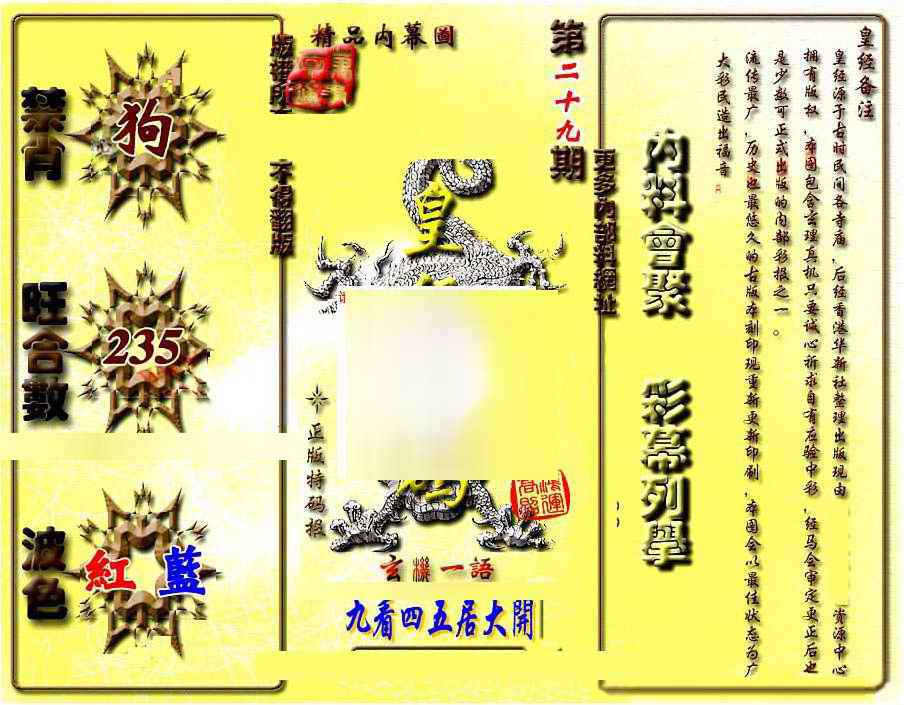 皇经备注
皇经源于古时民间各寺庙，后经香港华新社整理出版现由 资源中心
拥有版权，本图包含玄理真机只要诚心祈求自有应验中彩，经马会审定更正后也
是少数可正式出版的内部彩报之一。
流传最广，历史也最悠久的古版本刻印现重新更新印刷，本图会以最佳状态为广
大彩民造出福音
内料會聚
彩幕列舉
更多内部料網址
第二十九期
精品内幕圖
版權所
不得翻版
皇
正版特码报
玄機一語
九看四五居大開
禁肖
狗
旺合數
235
波色
紅 藍